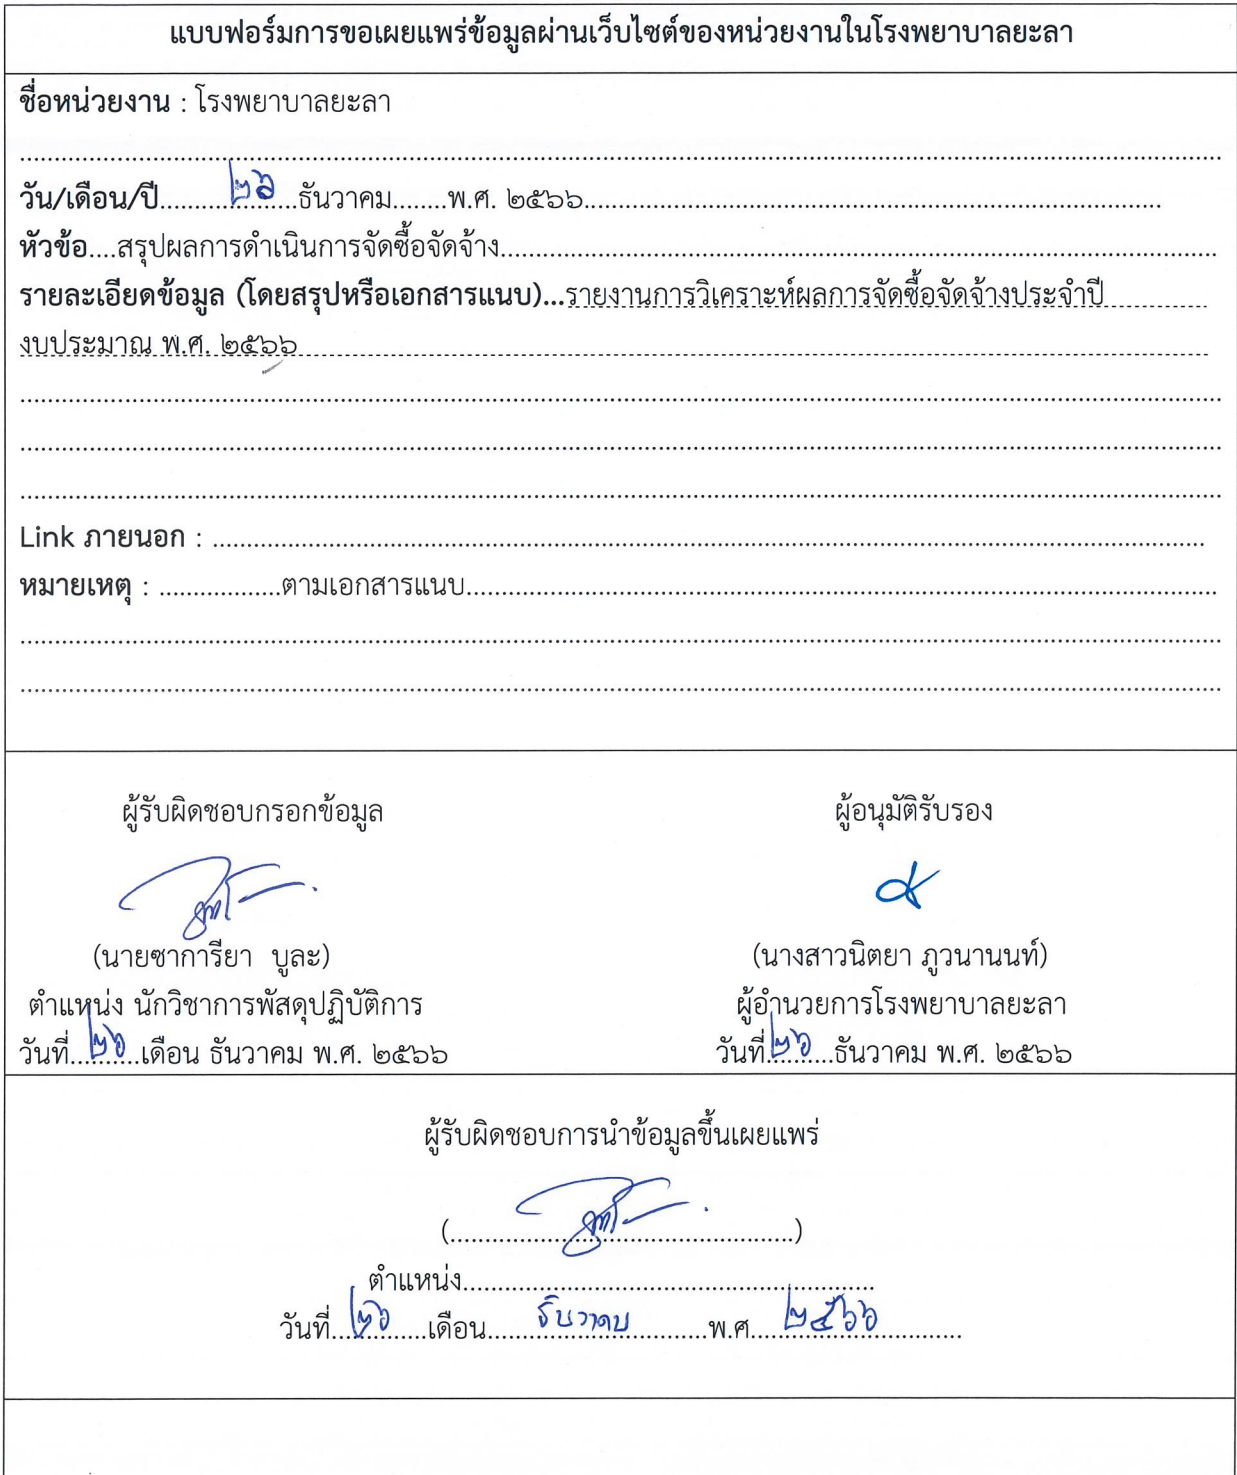 แบบฟอร์มการขอเผยแพร่ข้อมูลผ่านเว็บไซต์ของหน่วยงานในโรงพยาบาลยะลา
ชื่อหน่วยงาน : โรงพยาบาลยะลา
วัน/เดือน/ปี...........๒๖...ธันวาคม........พ.ศ. ๒๕๖๖...........
หัวข้อ....สรุปผลการดำเนินการจัดซื้อจัดจ้าง...........
รายละเอียดข้อมูล (โดยสรุปหรือเอกสารแนบ)...รายงานการวิเคราะห์ผลการจัดซื้อจัดจ้างประจำปี
งบประมาณ พ.ศ. ๒๕๖๖
Link ภายนอก : ...........
หมายเหตุ : ..................ตามเอกสารแนบ...........
ผู้รับผิดชอบกรอกข้อมูล
ผู้อนุมัติรับรอง
(นายซาการียา บูละ)
(นางสาวนิตยา ภูวนานนท์)
ตำแหน่ง นักวิชาการพัสดุปฏิบัติการ
ผู้อำนวยการโรงพยาบาลยะลา
วันที่..๒๖...เดือน ธันวาคม พ.ศ. ๒๕๖๖
วันที่..๒๖...ธันวาคม พ.ศ. ๒๕๖๖
ผู้รับผิดชอบการนำข้อมูลขึ้นเผยแพร่
(...........)
ตำแหน่ง...........
วันที่...๒๖...เดือน....ธันวาคม....พ.ศ....๒๕๖๖....